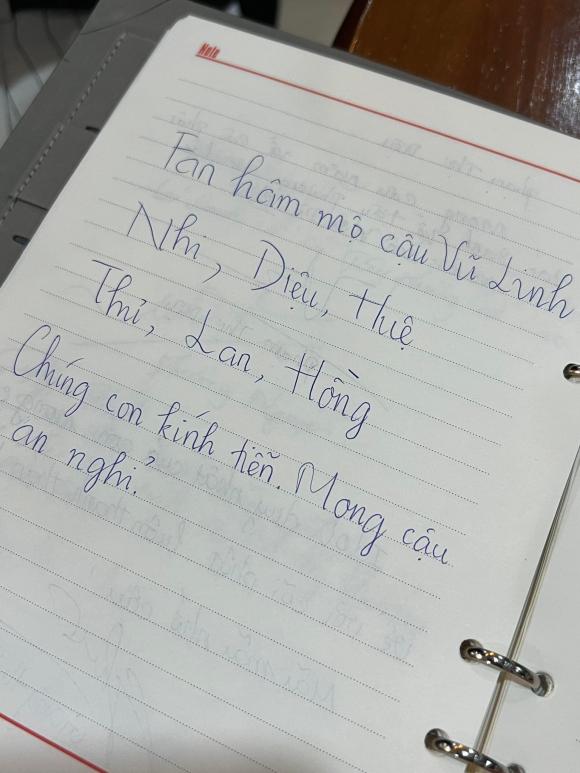 Note
Fan hâm mộ cậu Vũ Linh
Nhi, Diệu, Huệ
Thi, Lan, Hồng
Chúng con kính tiễn. Mong cậu
an nghỉ.